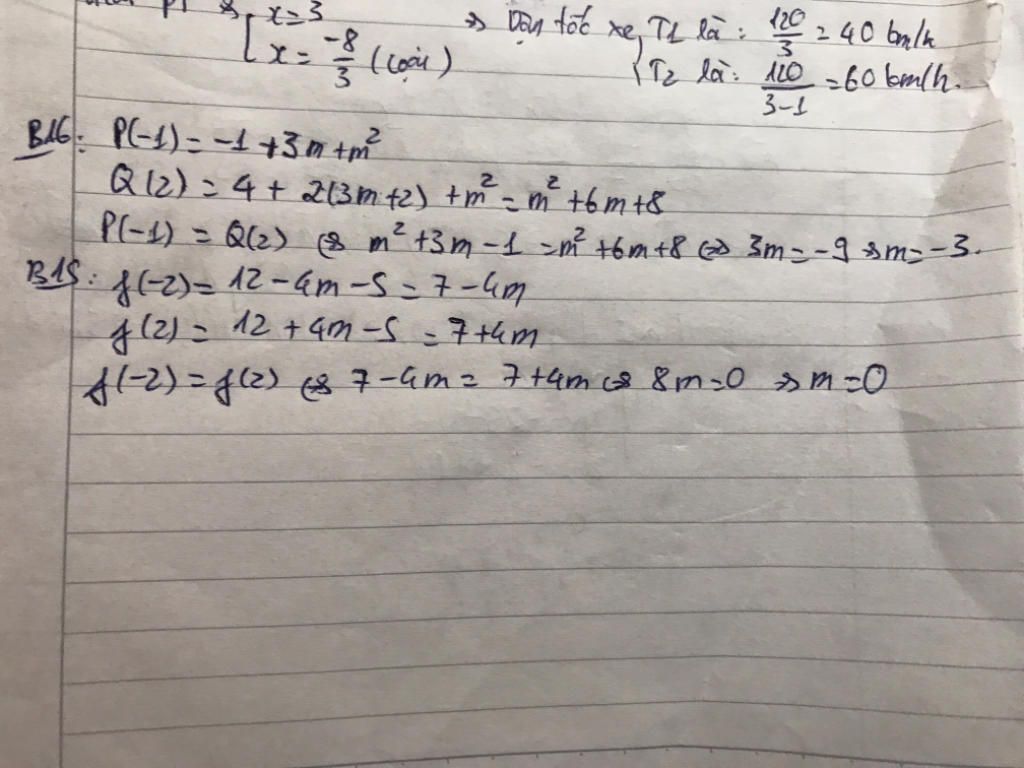 PT ⇔ [x=3
x = -8/3 (loại)
⇒ Vận tốc xe T1 là: 120/3 = 40 km/h
T2 là: 120/3-1 = 60 km/h.
B16: P(-1) = -1 + 3m + m²
Q(2) = 4 + 2(3m+2) + m² = m² + 6m + 8
P(-1) = Q(2) ⇔ m² + 3m - 1 = m² + 6m + 8 ⇔ 3m = -9 ⇒ m = -3.
B15: f(-2) = 12 - 4m - 5 = 7 - 4m
f(2) = 12 + 4m - 5 = 7 + 4m
f(-2) = f(2) ⇔ 7 - 4m = 7 + 4m ⇔ 8m = 0 ⇒ m = 0